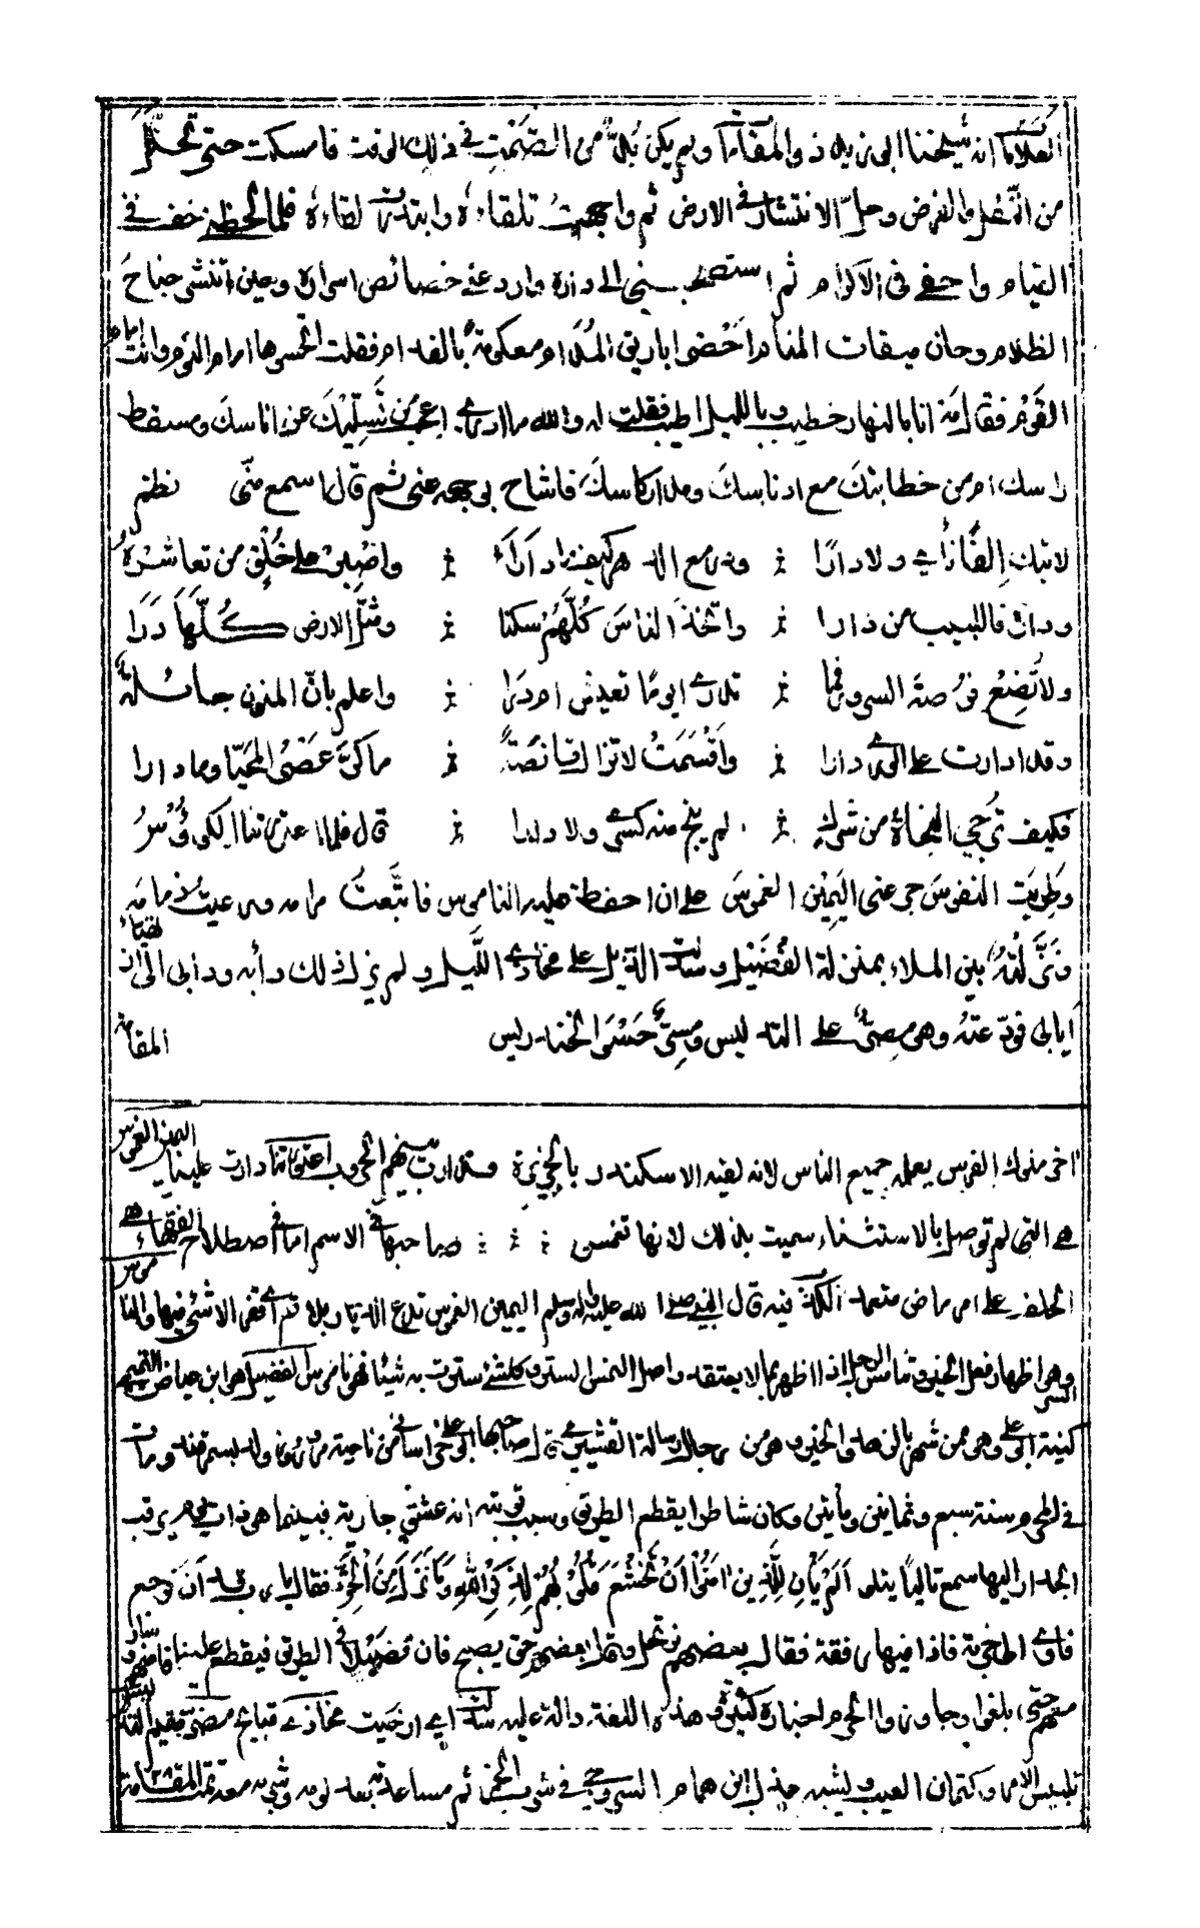 العلامة انه شيخنا ابو زيد ذو المقامات ولم يكن بد من الصمت في ذلك الوقت فامسكت حتى تحلل
من النفل والفرض وحل الانتشار في الارض ثم واجهت تلقاءه وابتدرت لقاءه فلما لحظني خف في
القيام واحفى في الاكرام ثم استصحبني الى داره واودعني خصائص اسراره وحين انتشر جناح
الظلام وحان ميقات المنام احضر اباريق المدام معكومة بالفدام فقلت اتحسوها امام النوم وانت امام
القوم فقال مه انا بالنهار خطيب وبالليل اطيب فقلت له والله ما ادري اعجب من تسليك عن اناسك ومسقط
راسك ام من خطابتك مع ادناسك ومدار كاسك فاشاح بوجهه عني ثم قال اسمع مني نظم
لا تبك الفا نأى ولا دارا ⁂ ودر مع الدهر كيفما دارا ⁂ واصبر على خلق من تعاشره
وداره فاللبيب من دارا ⁂ واتخذ الناس كلهم سكنا ⁂ ومثل الارض كلها دارا
ولا تضع فرصة السرور فما ⁂ تدري ايوما تعيش ام دارا ⁂ واعلم بان المنون جائلة
وقد ادارت على الورى دارا ⁂ واقسمت لا تزال قانصة ⁂ ما كر عصرى المحيا وما دارا
فكيف ترجى النجاة من شرك ⁂ لم ينج منه كسرى ولا دارا ⁂ قال فلما اعتورتنا الكؤوس
وطربت النفوس جرعني اليمين الغموس على ان احفظ عليه الناموس فاتبعت مرامه ورعيت ذمامه
ونزلته بين الملاء بمنزلة الفضيل وسدلت الذيل على مخازي الليل ولم يزل ذلك دأبه ودابي الى ان تهيأ
ايابي فودعته وهو مصر على التدليس ومسر حسو الخندريس المقامة
اخر ملوك الفرس يعمله جميع الناس لانه لقيه الاسكندر بالجزيرة ودارت بينهم الحروب اعتورتنا دارت علينا اليمين الغموس
هي التي لم توصل بالاستثناء سميت بذلك لانها تغمس ⁂ صاحبها في الاسم اما في اصطلاح الفقهاء هي
الحلف على امر ماض متعمد الكذب فيه قال النبي صلى الله عليه واله وسلم اليمين الغموس تدع الديار بلاقع اي قفر لا شئ فيها والناموس
وهو اظهار فعل الخير ونامس الرجل اذا اظهر ما لا يعتقد واصل النمس الستر وكل شئ سترت به شيئا فهو ناموس الفضيل هو ابن عياض التميمي
كنيته ابو علي وهو من شهر بالزهد والخير وهو من رجال رسالة القشيري قال صاحبها ابو علي خراساني من ناحية مرو ولد بسمرقند ومات
في المحرم سنة سبع وثمانين ومأتين وكان شاطرا يقطع الطريق وسبب توبته انه عشق جارية فبينما هو ذات يوم يرقب
الجدار اليها سمع تاليا يتلو الم يأن للذين امنوا ان تخشع قلوبهم لذكر الله وما نزل من الحق فقال يا رب قد آن فرجع
فاوى الى خربة فاذا فيها رفقة فقال بعضهم نرتحل وقال بعضهم حتى يصبح فان فضيلا في الطريق فيقطع علينا فامنهم
معهم حتى بلغوا وجاور الحرم واخباره كثيرة وهذه اللغة دالة عليه سدلت اي ارخيت مخازي قبايح مصر مقيم التدليس
تلبيس الامر وكتمان العيب